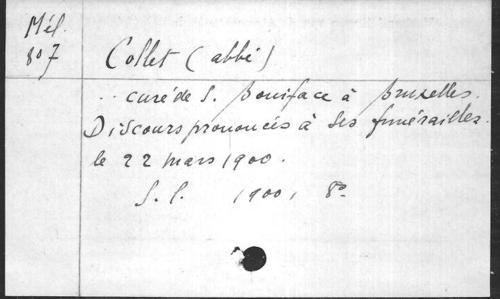 Mél.
807
Collet (abbé)
.. curé de S. Boniface à Bruxelles.
Discours prononcés à ses funérailles.
le 22 mars 1900.
S. l. 1900, 8°